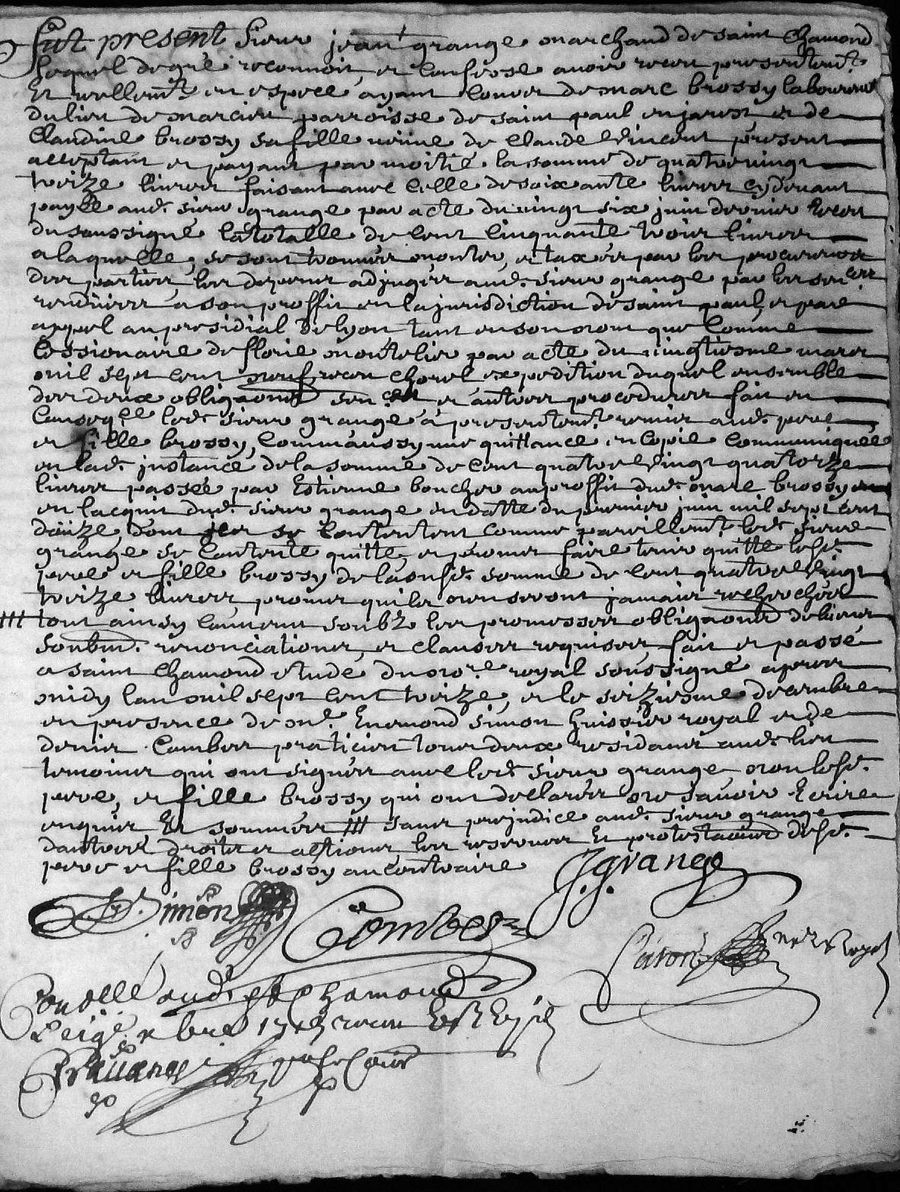 Fut present Sieur jean grange marchand de saint chamond
lequel de gré reconnoit et confesse avoir receu presentemt
Et réellemt en espece ayant cours de marc brossy laboureur
du lieu de marcieu parroisse de saint paul en jarest et de
Claudine brossy sa fille veuve de claude vincent present
acceptant et payant par moitié la somme de quatrevingt
treize livres faisant avec celle de soixante livres cy devant
payée aud. sieur grange par acte du vingt six juin dernier receu
du soussigné la totalle de cent cinquante trois livres
a laquelle se sont trouvés monter et taxés par les procureurs
des parties les depens adjugés aud. sieur grange par les sences
rendües a son proffit en la jurisdiction de saint paul et par
appel au presidial de lyon tant en son nom que comme
Cessionaire de florie montelier par acte du vingtiesme mars
mil sept cent neuf receu chorel expedition duquel ensemble
des deux obligaons sences et autres procedures fait en
Conseqce led. sieur grange a presentemt remis aud. pere
et fille brossy, comm'aussy une quittance en copie communiquée
en lad. instance de la somme de cent quatrevingt quatorze
livres passée par Estienne boucher au proffit dud. marc brossy en
en l'acquit dud. sieur grange en datte du premier juin mil sept cent
douze dont ils se contentent comme pareillemt led. sieur
grange se contente quitte et promet faire tenir quitte lesd.
pere et fille brossy de la susd. somme de cent quatrevingt
treize livres promet qu'ils n'en seront jamais recherchés
/// tout ainsy convenu soubz les promesses obligaons de biens
soubm. renonciations et clauses requises fait et passé
a saint chamond etude du nore royal soussigné apres
midy l'an mil sept cent treize et le seiziesme decembre
en presence de me Enemond simon huissier royal et de
denis Combes praticien tous deux residants aud. lieu
temoins qui ont signés avec led. sieur grange non lesd.
pere et fille brossy qui ont declarés ne savoir Ecrire
enquis Et sommés /// sans prejudice aud. sieur grange
d'autres droits et actions les reserves Et protestaons desd.
pere et fille brossy au contraire
J. grange
Simon
Combes
nore Royal
Conollé aud. st chamond